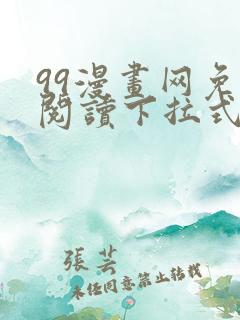 99漫畫网免
閱讀下拉式
張芸
未经同意禁止转载